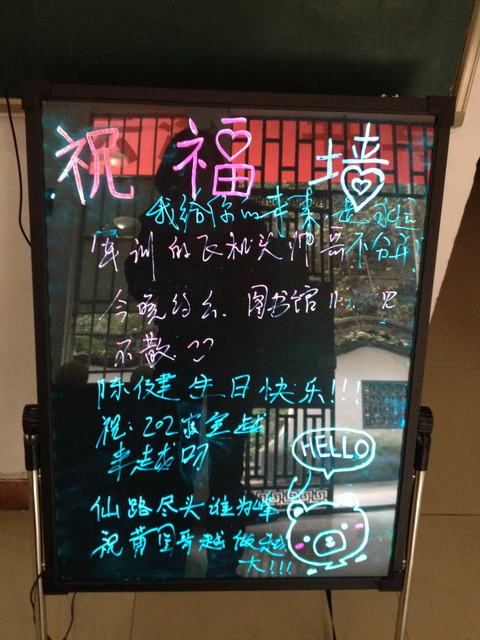 祝福墙
我给你的未来是永远
军训的飞机头帅哥不分开
今晚约么 图书馆 见
不散
陈健生日快乐!!!
祝:202寝室越
来越叼
HELLO
仙路尽头谁为峰
祝黄哥越做越
大!!!